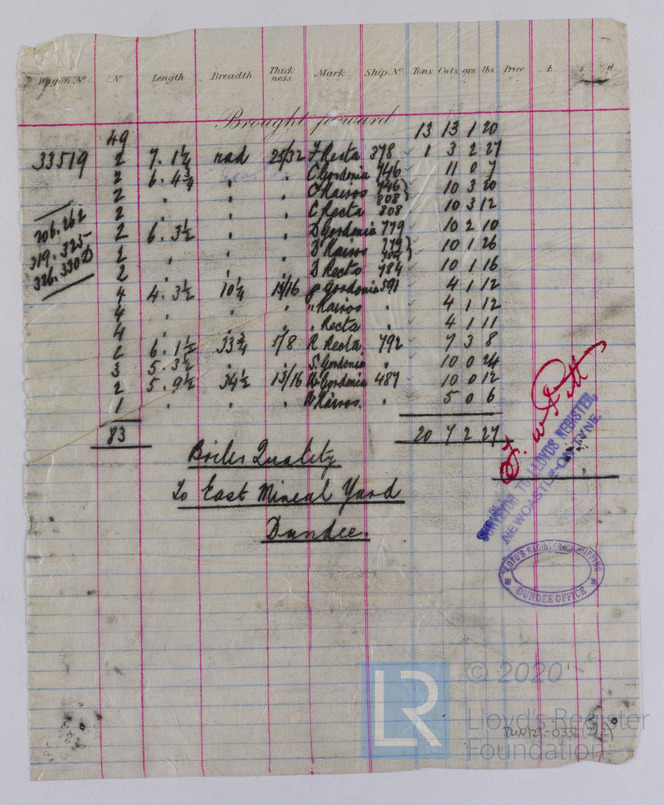 Wagon No No Length Breadth Thickness Mark Ship No Tons Cwts qrs lbs Price £ s d
Brought forward
49 13 13 1 20
33519 2 7. 1½ rad 25/32 F Recta 378 1 3 2 27
2 6. 4¾ " " C Gordonia 746 11 0 7
2 " " " C Kairos 746 808 10 3 20
2 " " " C Recta 808 10 3 12
206.262 2 6. 3½ " " D Gordonia 779 10 2 10
319.325 2 " " " D Kairos 779 10 1 26
326.330 2 " " " D Recta 784 10 1 16
4 4. 3½ 10¼ 14/16 Gordonia 391 4 1 12
4 " " " " Kairos " 4 1 12
4 " " " " Recta " 4 1 11
2 6. 1½ 33¾ 7/8 R Recta 792 7 3 8
3 5. 3½ " " S. Gordonia " 10 0 24
2 5. 9½ 34½ 13/16 W Gordonia 487 10 0 12
1 " " " W Kairos " 5 0 6
83 20 7 2 27
Boiler Quality
To East Mineral Yard
Dundee.
SURVEYOR TO LLOYDS REGISTER,
NEWCASTLE-ON-TYNE.
LLOYD'S REGISTER OF SHIPPING
DUNDEE OFFICE
LR
© 2020
Lloyd's Register
Foundation